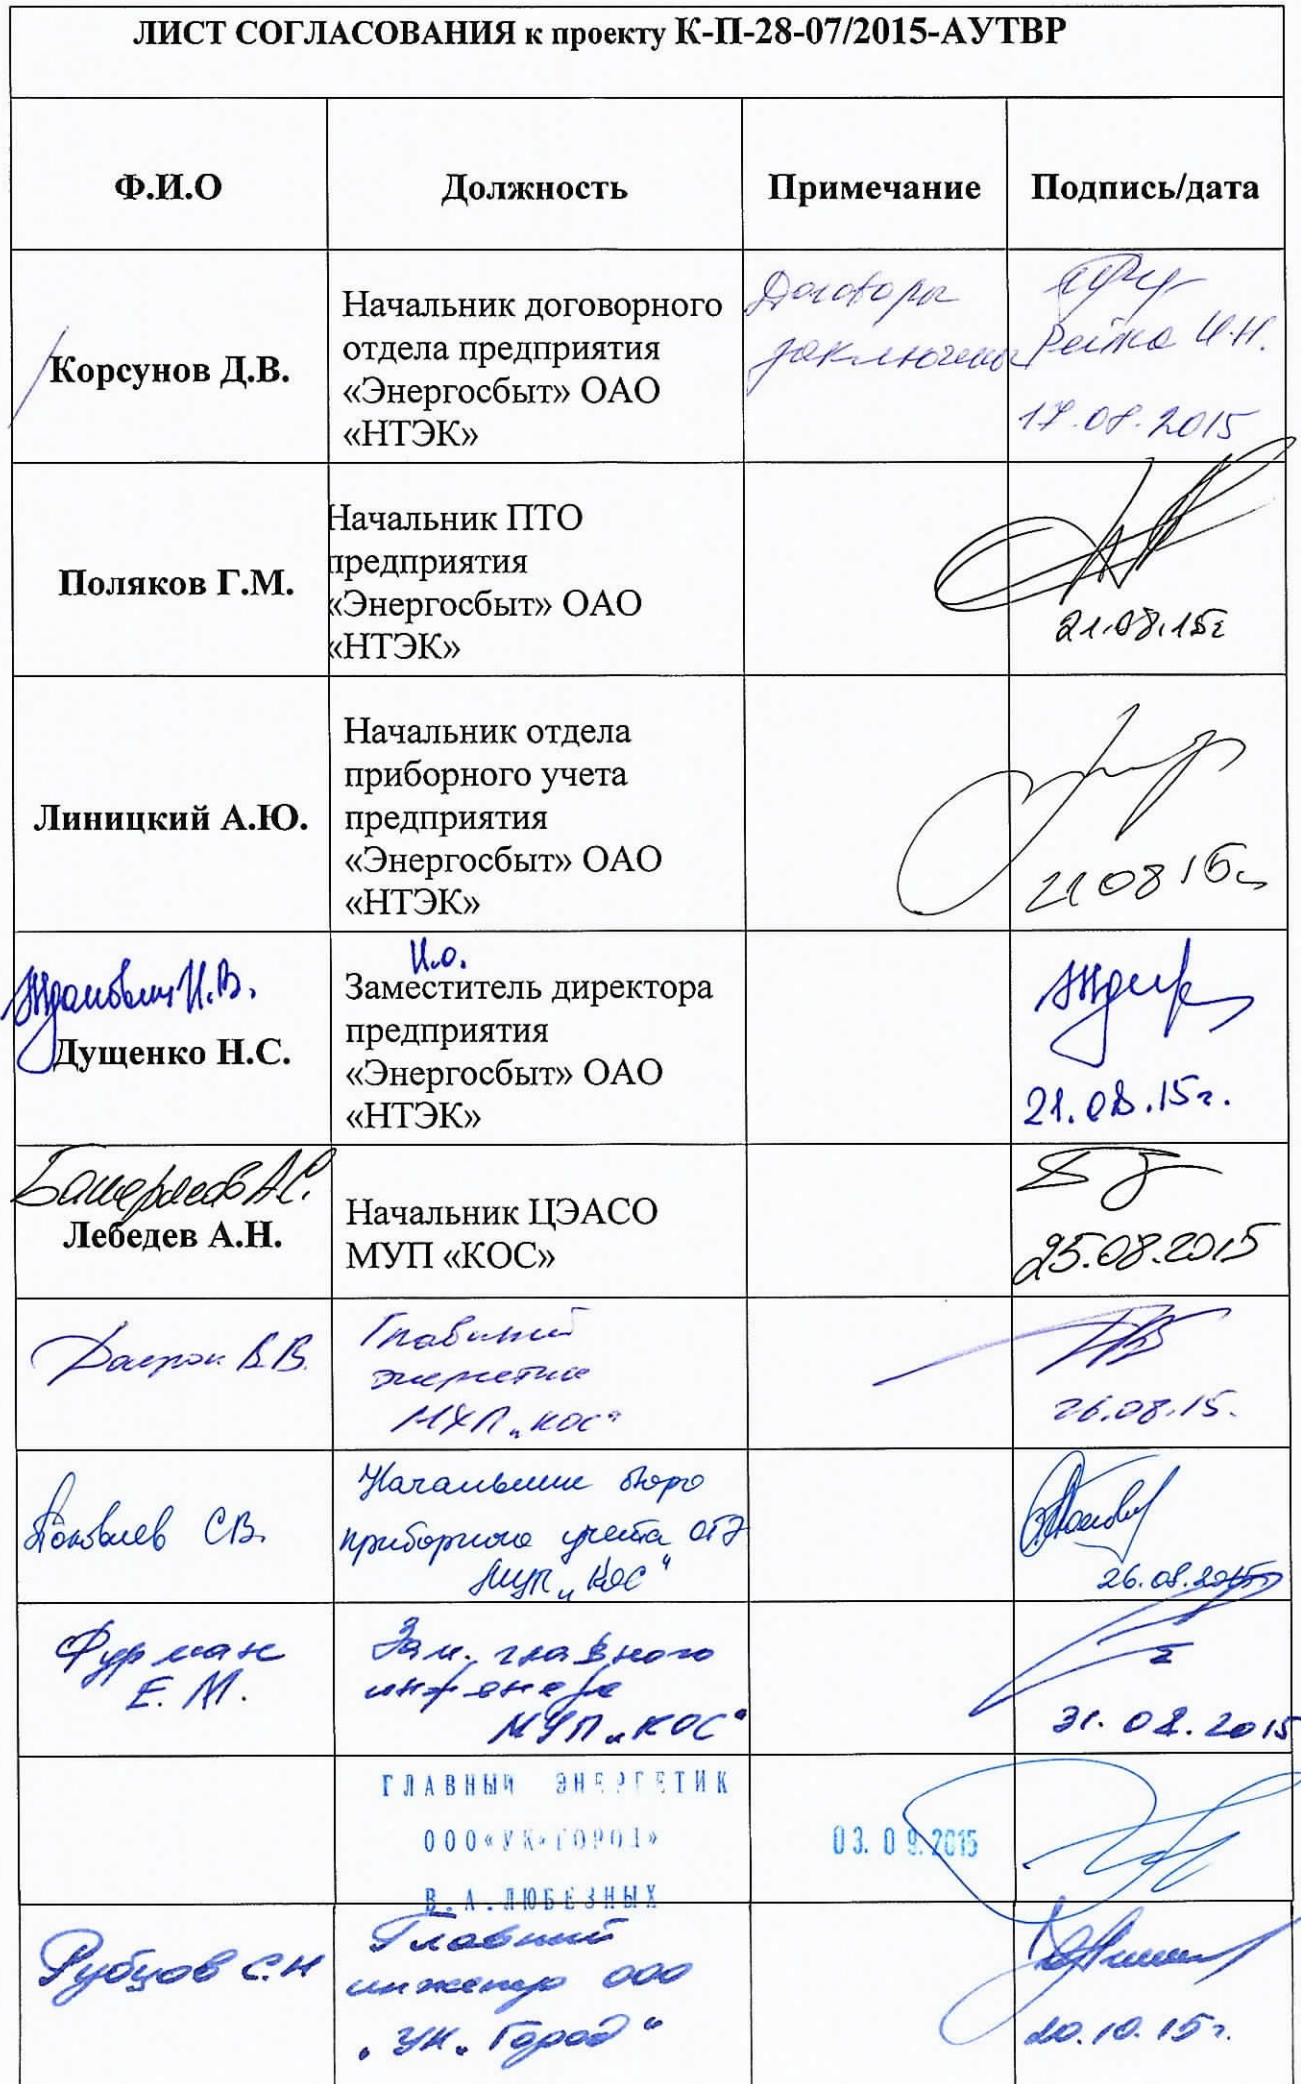 ЛИСТ СОГЛАСОВАНИЯ к проекту К-П-28-07/2015-АУТВР
Ф.И.О
Должность
Примечание
Подпись/дата
Корсунов Д.В.
Начальник договорного
отдела предприятия
«Энергосбыт» ОАО
«НТЭК»
Договоры
заключены
И.Н.
17.08.2015
Поляков Г.М.
Начальник ПТО
предприятия
«Энергосбыт» ОАО
«НТЭК»
21.08.15г
Линицкий А.Ю.
Начальник отдела
приборного учета
предприятия
«Энергосбыт» ОАО
«НТЭК»
21 08 15г
Жданович И.В.
Дущенко Н.С.
И.о.
Заместитель директора
предприятия
«Энергосбыт» ОАО
«НТЭК»
21.08.15г.
А.С.
Лебедев А.Н.
Начальник ЦЭАСО
МУП «КОС»
25.08.2015
В.В.
Главный
энергетик
МУП „КОС"
26.08.15.
Яковлев С.В.
Начальник бюро
приборного учета ОГЭ
МУП „КОС"
26.08.2015
Фурман
Е.М.
Зам. главного
инженера
МУП „КОС"
31.08.2015
ГЛАВНЫЙ ЭНЕРГЕТИК
ООО«УК«ГОРОД»
В.А.ЛЮБЕЗНЫХ
03.09.2015
Рубцов С.Н
Главный
инженер ООО
„УК „Город"
20.10.15г.